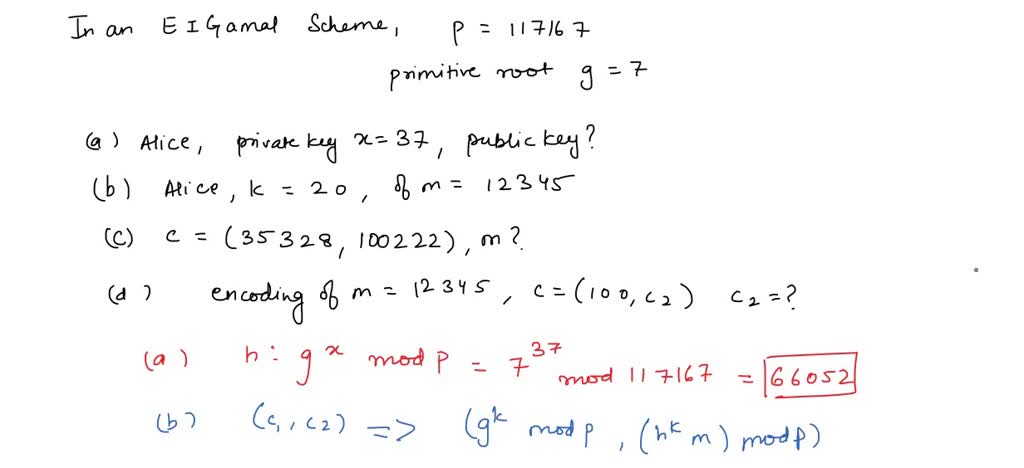 In an EIGamal Scheme, p = 117167
primitive root g = 7
(a) Alice, private key x = 37, public key?
(b) Alice, k = 20, of m = 12345
(c) c = (35328, 100222), m?
(d) encoding of m = 12345, c = (100, c2) c2 = ?
(a) h : g^x mod p = 7^37 mod 117167 = 66052
(b) (c1, c2) => (g^k mod p, (h^k m) mod p)